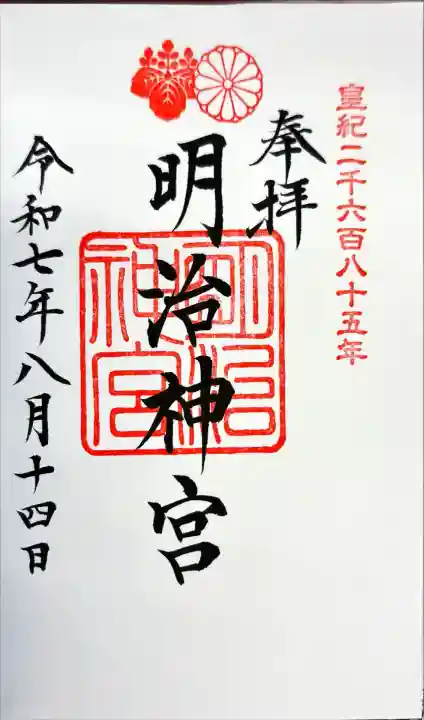 皇紀二千六百八十五年
奉拝
明治神宮
明治神宮
令和七年八月十四日